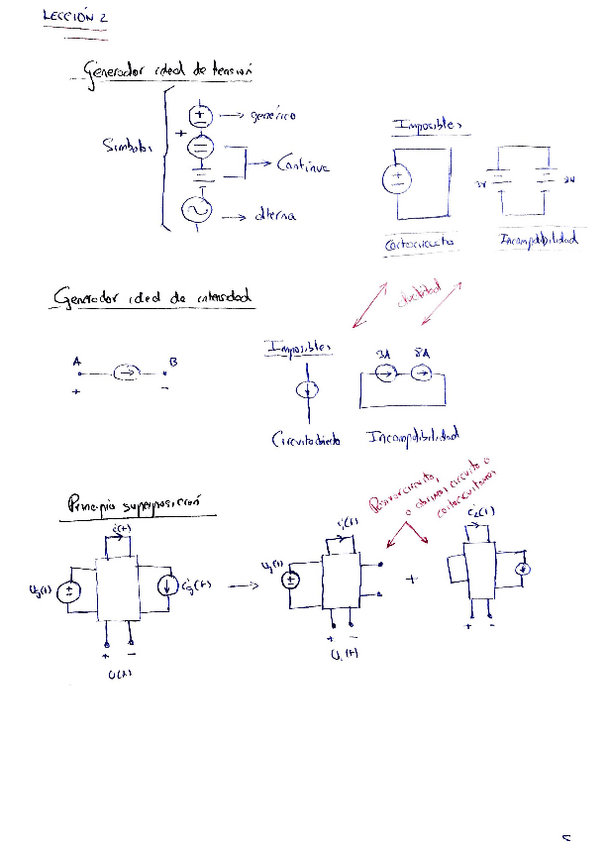 LECCIÓN 2
Generador ideal de tensión
Símbolos
+
genérico
Continua
alterna
Imposibles
3V
Cortocircuito
Incompatibilidad
dualidad
Generador ideal de intensidad
A
B
+ -
Imposibles
3A 8A
Circuito abierto
Incompatibilidad
Principio superposición
i(t)
Ug(t)
ig(t)
+ -
U(t)
i1(t)
Ug(t)
+ -
U1(t)
+
o abrimos circuito o
cortocircuitamos
i2(t)
+ -
5